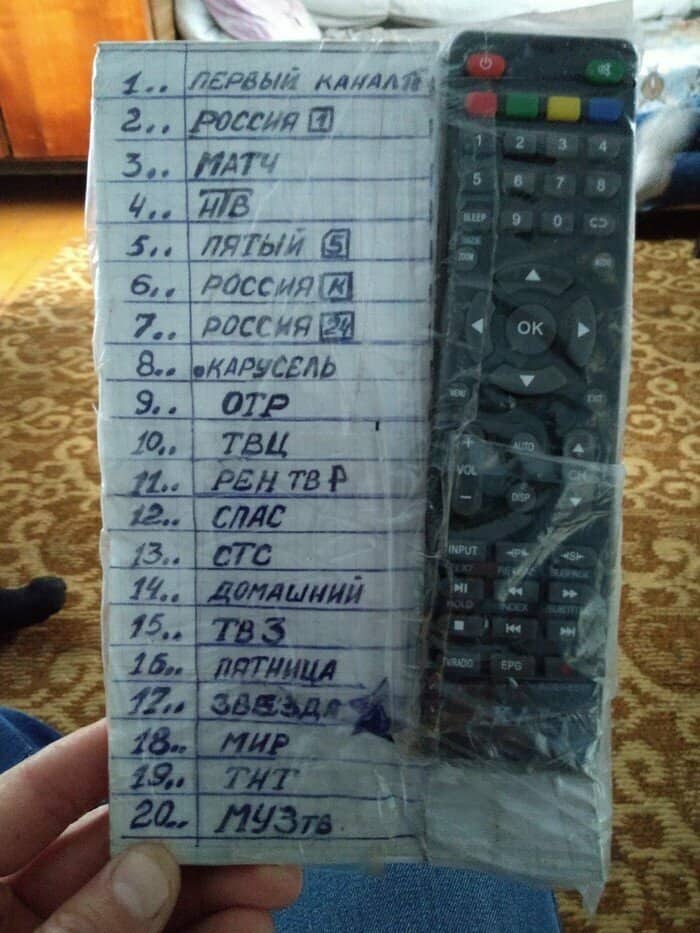 1.. ПЕРВЫЙ КАНАЛ
2.. РОССИЯ 1
3.. МАТЧ
4.. НТВ
5.. ПЯТЫЙ 5
6.. РОССИЯ К
7.. РОССИЯ 24
8.. КАРУСЕЛЬ
9.. ОТР
10.. ТВЦ
11.. РЕН ТВ Р
12.. СПАС
13.. СТС
14.. ДОМАШНИЙ
15.. ТВ3
16.. ПЯТНИЦА
17.. ЗВЕЗДА
18.. МИР
19.. ТНТ
20.. МУЗТВ
1 2 3 4
5 6 7 8
SLEEP 9 0
ZOOM
OK
MENU EXIT
+ AUTO
VOL CH
- DISP
INPUT
HOLD INDEX SUBTITLE
TV/RADIO EPG